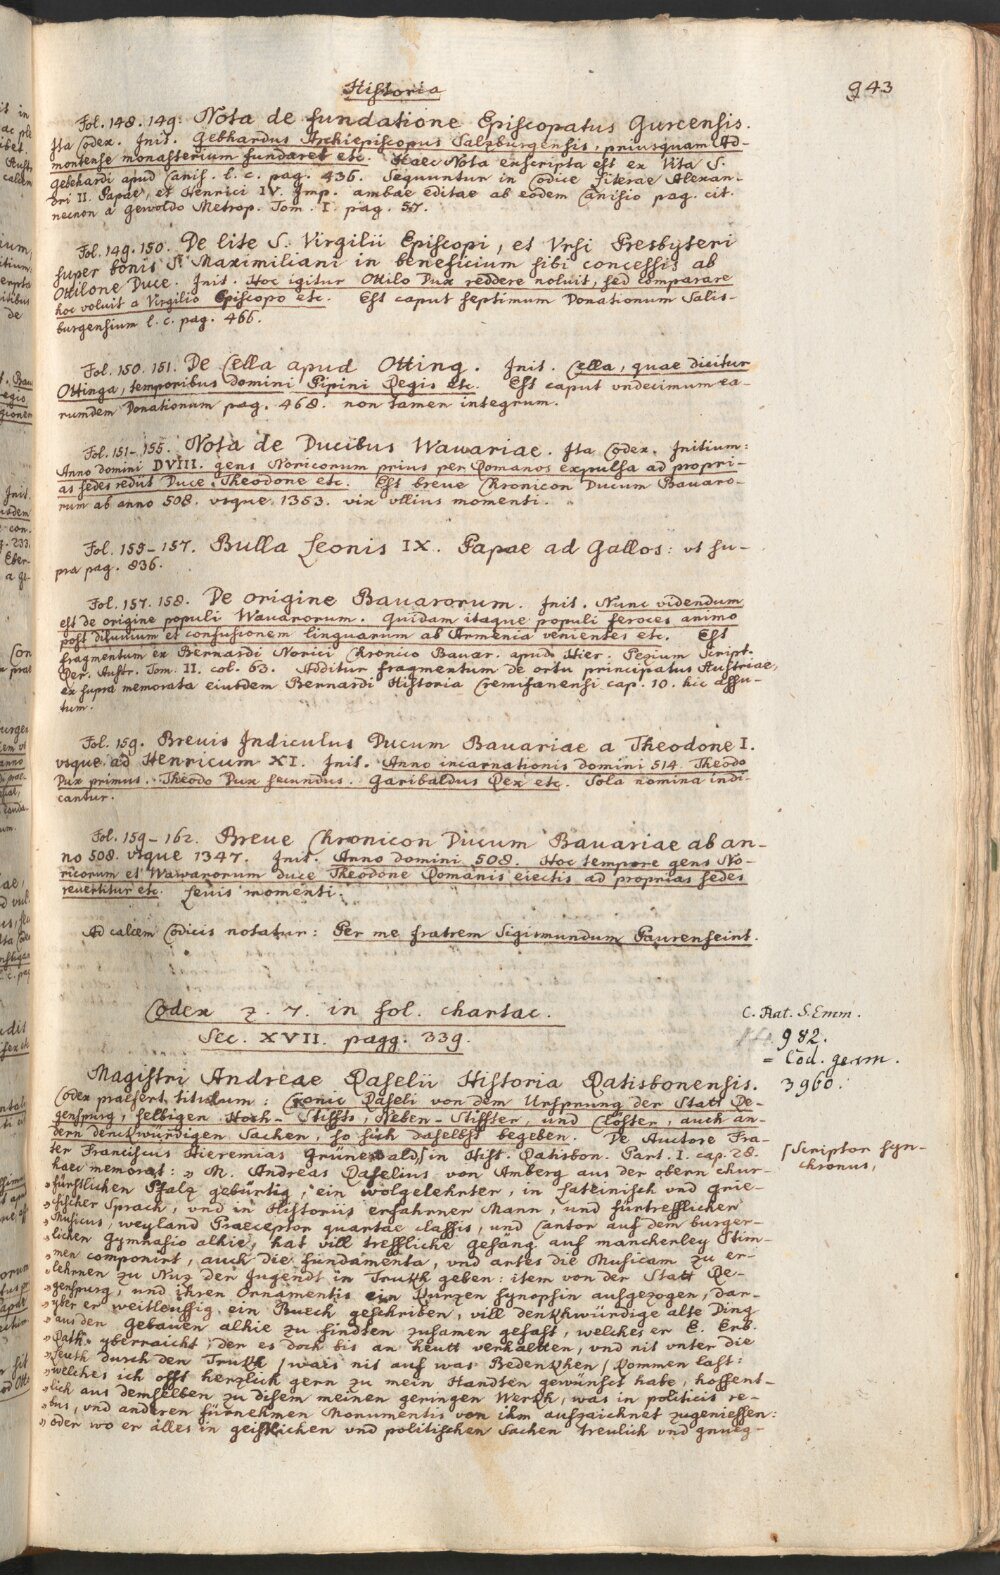 Historia
943
Fol. 148. 149. Nota de fundatione Episcopatus Gurcensis.
Ita Codex. Init. Gebhardus Archiepiscopus Salzburgensis, priusquam Ad-
montense monasterium fundaret etc. Haec Nota exscripta est ex Vita S.
Gebehardi apud Canis. l. c. pag. 436. Sequuntur in Codice literae Alexan-
dri II. Papae, et Henrici IV. Imp. ambae editae ab eodem Canisio pag. cit.
necnon a Gewoldo Metrop. Tom. I. pag. 57.
Fol. 149. 150. De lite S. Virgilii Episcopi, et Vrsi Presbyteri
super bonis S. Maximiliani in beneficium sibi concessis ab
Ottilone Duce. Init. Hoc igitur Ottilo Dux reddere noluit, sed comparare
hoc voluit a Virgilio Episcopo etc. Est caput septimum Donationum Salis-
burgensium l. c. pag. 466.
Fol. 150. 151. De Cella apud Otting. Init. Cella, quae dicitur
Ottinga, temporibus domini Pipini Regis etc. Est caput vndecimum ea-
rumdem Donationum pag. 468. non tamen integrum.
Fol. 151-155. Nota de Ducibus Wawariae. Ita Codex. Initium:
Anno domini DVIII. gens Noricorum prius per Romanos expulsa ad propri-
as sedes rediit Duce Theodone etc. Est breue Chronicon Ducum Bauaro-
rum ab anno 508. vsque 1353. vix vllius momenti.
Fol. 155-157. Bulla Leonis IX. Papae ad Gallos: vt su-
pra pag. 836.
Fol. 157. 158. De origine Bauarorum. Init. Nunc videndum
est de origine populi Wauarorum. Quidam itaque populi feroces animo
post diluuium et confusionem linguarum ab Armenia venientes etc. Est
fragmentum ex Bernardi Norici Chronico Bauar. apud Hier. Pezium Script.
Rer. Austr. Tom. II. col. 63. Additur fragmentum de ortu principatus Austriae,
ex supra memorata eiusdem Bernardi Historia Cremifanensi cap. 10. hic assu-
tum.
Fol. 159. Breuis Indiculus Ducum Bauariae a Theodone I.
vsque ad Henricum XI. Init. Anno incarnationis domini 514. Theodo
Dux primus. Theodo Dux secundus. Garibaldus Rex etc. Sola nomina indi-
cantur.
Fol. 159-162. Breue Chronicon Ducum Bauariae ab an-
no 508. vsque 1347. Init. Anno domini 508. Hoc tempore gens No-
ricorum et Wawarorum duce Theodone Romanis eiectis ad proprias sedes
reuertitur etc. Leuis momenti.
Ad calcem Codicis notatur: Per me fratrem Sigismundum Paurenfeint.
Codex Z. 7. in fol. chartac.
Sec. XVII. pagg. 339.
C. Rat. S. Emm.
982.
= Cod. germ.
3960.
Magistri Andreae Raselii Historia Ratisbonensis.
Codex praefert titulum: Cronic Raseli von dem Ursprung der Statt Re-
genspurg, selbigen Hoch-Stiffts, Neben-Stiffter, und Clöster, auch an-
dern denckwürdigen Sachen, so sich daselbst begeben. De Auctore Fra-
ter Franciscus Hieremias Grünewald in Hist. Ratisbon. Part. I. cap. 28.
haec memorat: „ M. Andreas Raselius von Amberg aus der obern Chur-
⌈Scriptor syn-
chronus,
„ fürstlichen Pfalz gebürtig, ein wolgelehrter, in Lateinisch vnd Grie-
„ chischer Sprach, vnd in Historiis erfahrner Mann, und fürtrefflicher
„ Musicus, weyland Praeceptor quartae classis, und Cantor auf dem burger-
„ lichen Gymnasio alhie, hat vill treffliche gesäng auf mancherley Stim-
„ men componirt, auch die fundamenta, vnd artes die Musicam zu er-
„ lehrnen zu Nuz der Jugendt in Truckh geben: item von der Statt Re-
„ genspurg, und ihren Ornamentis ein kurzen synopsin aufgezogen, dar-
„ yber er weitleuffig ein Buech geschriben, vill denckhwürdige alte Ding
„ aus den Gebäuen alhie zu findten zusamen gefast, welches er E. Erb.
„ Rath yberraicht, der es doch bis an heutt verhaltten, vnd nit vnter die
„ Leuth durch den Truckh (wais nit auf was Bedenckhen) kommen last:
„ welches ich offt herzlich gern zu mein Handten gewünscht habe, hoffent-
„ lich aus demselben zu disem meinen geringen Werckh, was in politicis re-
„ bus, vnd anderen fürnehmen Monumentis von ihm aufzeichnet zugeniessen:
„ oder wo er alles in geistlichen vnd politischen Sachen treulich vnd gnueg-